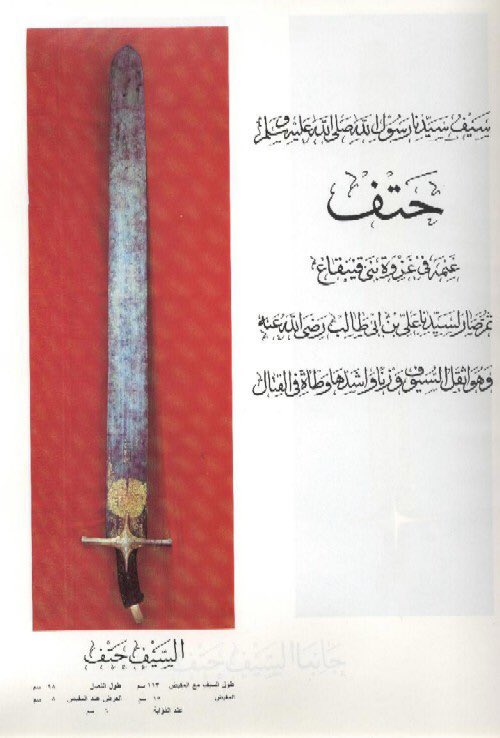 سيف سيدنا رسول الله صلى الله عليه وسلم
حتف
غنمه في غزوة بني قينقاع
ثم صار لسيدنا علي بن أبي طالب رضي الله عنه
وهو اثقل السيوف وزنا واشدها وطأة في القتال
السيف حتف
طول السيف مع المقبض ١١٣ سم طول النصل ٩٨ سم
المقبض ١٥ سم العرض عند المقبض ٨ سم
عند الذؤابة ٦ سم
جانبا السيف حتف